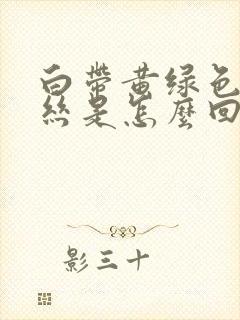 白带黄绿色
丝是怎麼回
影三十